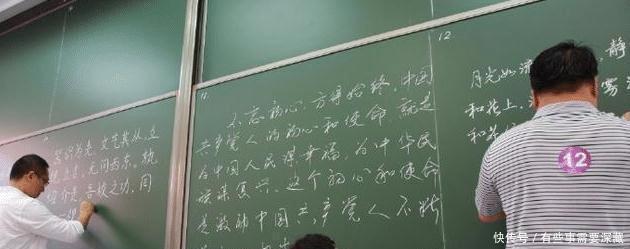 器识为先,文艺其从,立
立言,无问西东。孰
绍介是 吾校之功,同
11.
不忘初心,方得始终,中国
共产党人的初心和使命 就是
为中国人民谋幸福,为中华民
族谋复兴。这个初心和使命
是激励中国共产党人不断
12
月光如流 静
和花上, 雾
和花
12
快传号/有些事需要深藏